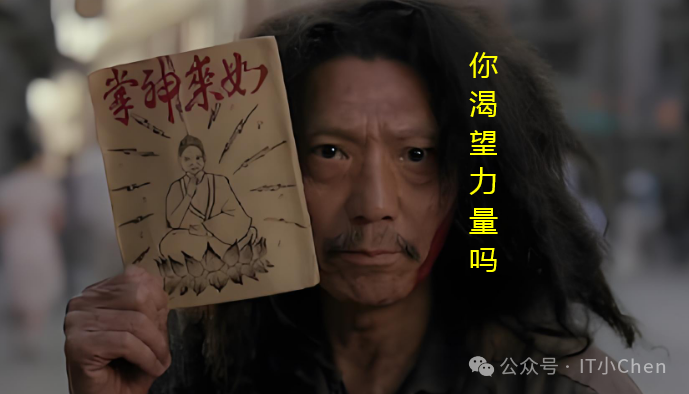 如来神掌
你渴望力量吗
公众号 · IT小Chen